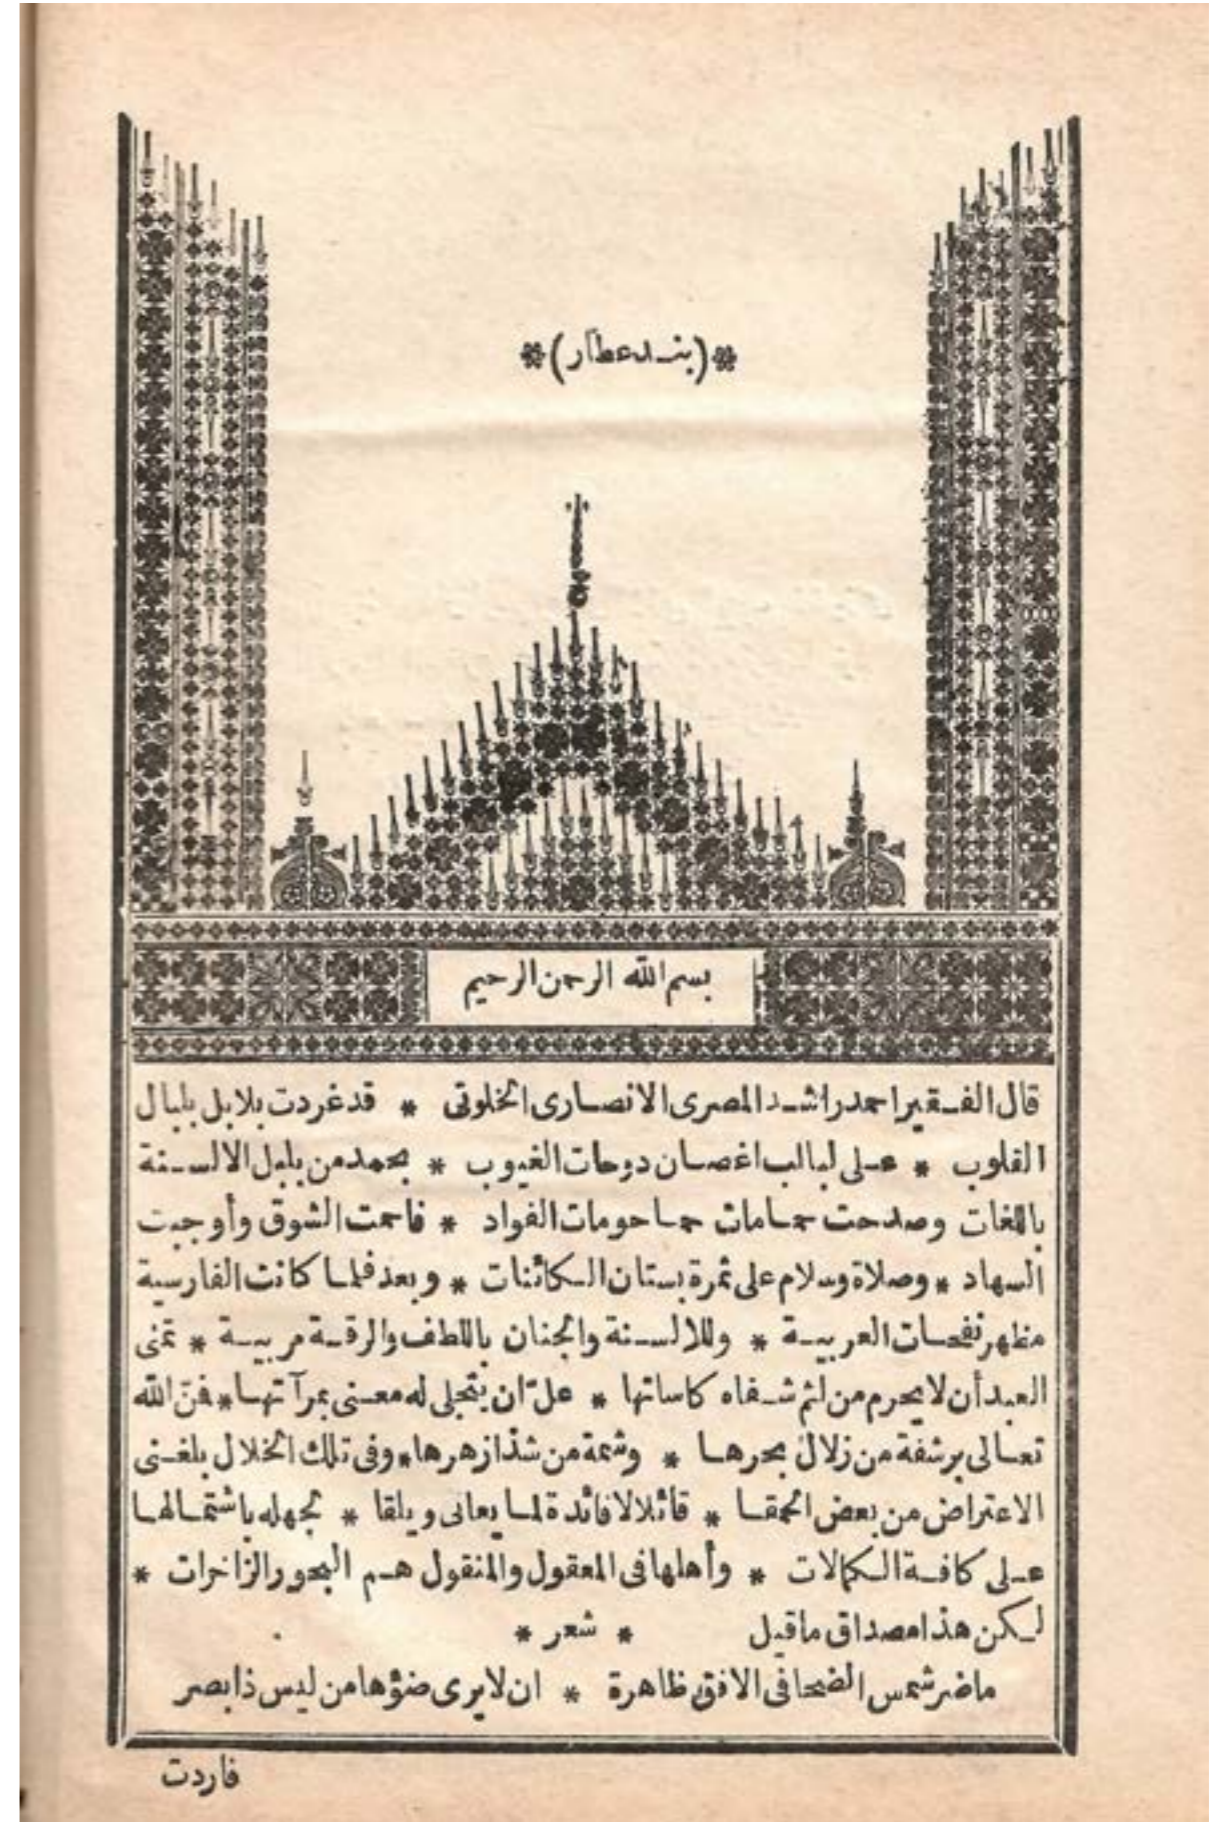 *(بند عطار)*
بسم الله الرحمن الرحيم
قال الفقير احمد راشد المصرى الانصارى الخلوتى * قد غردت بلابل بلبال
القلوب * على لبالب اغصان دوحات الغيوب * بحمد من بلبل الالسنة
باللغات وصدحت حمامات حما حومات الفواد * فاحمت الشوق وأوجبت
السهاد * وصلاة وسلام على ثمرة بستان الكائنات * وبعد فلما كانت الفارسية
مظهر نفحات العربية * وللالسنة والجنان باللطف والرقة مربية * تمنى
العبد أن لا يحرم من لثم شفاه كاساتها * علّ ان يتجلى له معنى بمرآتها * فمنّ الله
تعالى برشفة من زلال بحرها * وشمة من شذا زهرها * وفى تلك الخلال بلغنى
الاعتراض من بعض الحمقا * قائلا لا فائدة لما يعانى ويلقا * لجهله باشتمالها
على كافة الكمالات * وأهلها فى المعقول والمنقول هم البحور الزاخرات *
لكن هذا مصداق ماقيل * شعر *
ماضر شمس الضحا فى الافق ظاهرة * ان لا يرى ضوؤها من ليس ذا بصر
فاردت